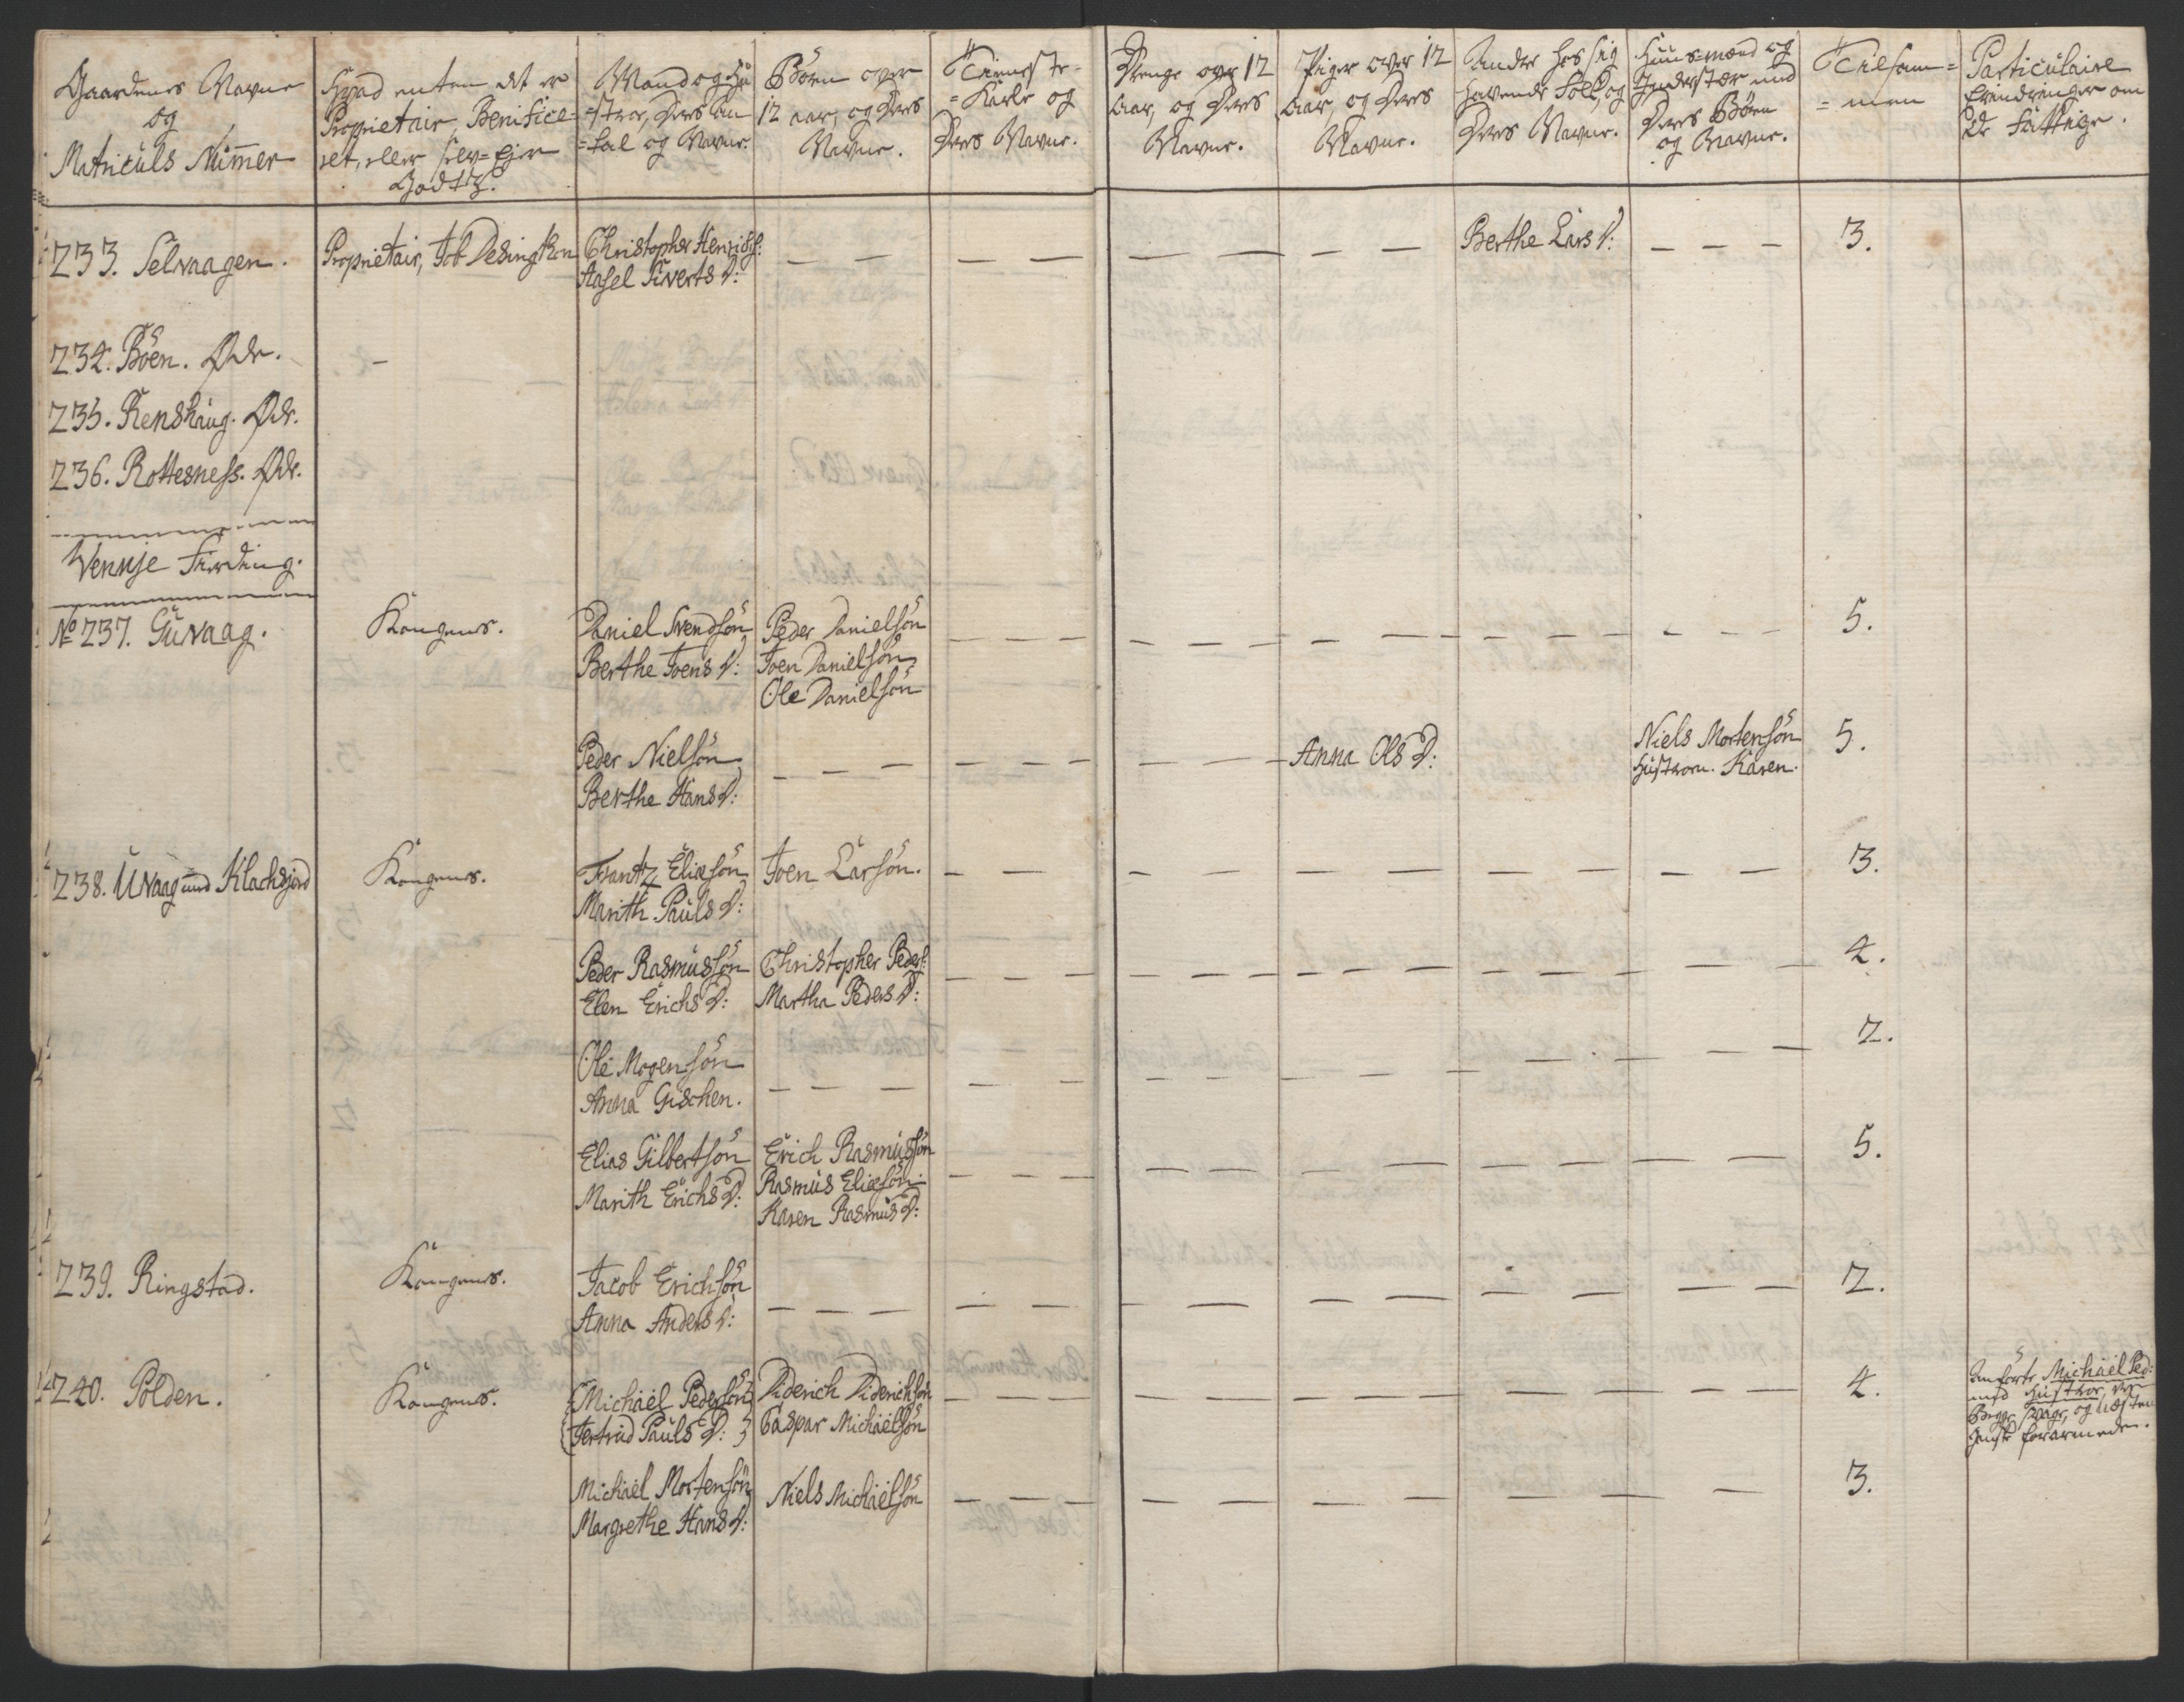 Gaardenes Navne
og
Matriculs Nummer
Hvad enten det er
Proprietair, Benifice-
ret, eller Selv-Ejer
Godtz.
Mand og Hu
=stroe, Deres An
=tal og Navne.
Börn over
12 aar, og Deres
Navne.
Tienneste-
=Karle og
Deres Navne.
Drenge over 12
aar, og Deres
Navne.
Piger over 12
aar, og Deres
Navne.
Andre hos sig
havende Folk, og
Deres Navne.
Huusmænd og
Inderster med
Deres Börn
og Navne.
Tilsam=
=men
Particulaire
Erindringer om
De Fattige.
233. Selvaagen.
Proprietair, Job Desington
Christopher Henrichs:
Aasel Siverts D:
Berthe Lars D:
3.
234. Böen. Øde.
235. Renshaug. Øde.
236. Rottesness. Øde.
Wennje Fierding.
No 237. Guvaag.
Kongens.
Daniel Svendsön
Berthe Joens D:
Peder Danielsön
Joen Danielsön
Ole Danielsön
5.
Peder Nielsön
Berthe Hans D:
Anna Ols D:
Niels Mortensön
Hustroen Karen.
5.
238. Uvaag med Klachsjord
Kongens.
Frantz Eliæsön
Marith Pauls D:
Joen Larsön.
3.
Peder Rasmussön
Elen Erichs D:
Christopher Peders:
Martha Peders D:
4.
Ole Mogensön
Anna Gischen.
2.
Elias Gilbertsön
Marith Erichs D:
Erich Rasmussön
Rasmus Eliæsön
Karen Rasmus D:
5.
239. Ringstad.
Kongens.
Jacob Erichsön
Anna Anders D:
2.
240. Polden.
Kongens.
Michael Pedersön
Gertrud Pauls D:
Diderich Diderichsön
Caspar Michaelsön
4.
Anförte Michael Ped:
med Hustroe, er
Begge svage, og næsten
gandske forarmede.
Michael Mortensön
Margrethe Hans D:
Niels Michaelsön
3.